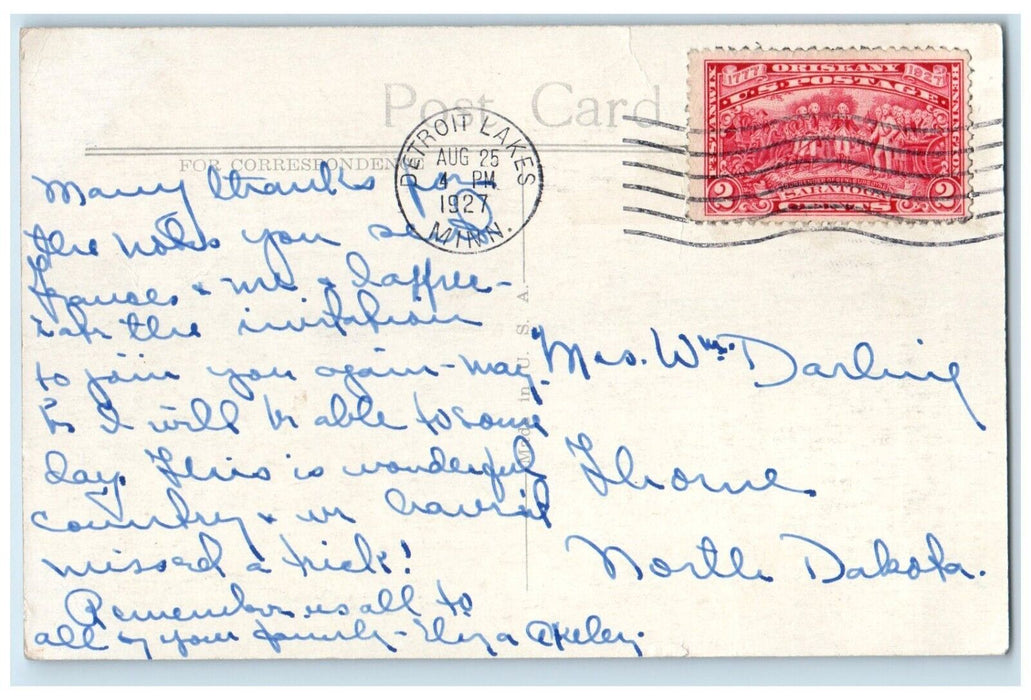 Post Card
FOR CORRESPONDENCE
DETROIT LAKES
AUG 25
4 PM
1927
MINN.
1777 ORISKANY 1927
U.S. POSTAGE
2 SARATOGA 2
CENTS
Made in U. S. A.
Many thanks for
the notes you sent
Frances & me & I appreciate
the invitation
to join you again - may
be I will be able to some
day. This is wonderful
country & we haven't
missed a trick!
Remember us all to
all of your family - Eliza Akeley.
Mrs. Wm. Darling
Thorne
North Dakota.